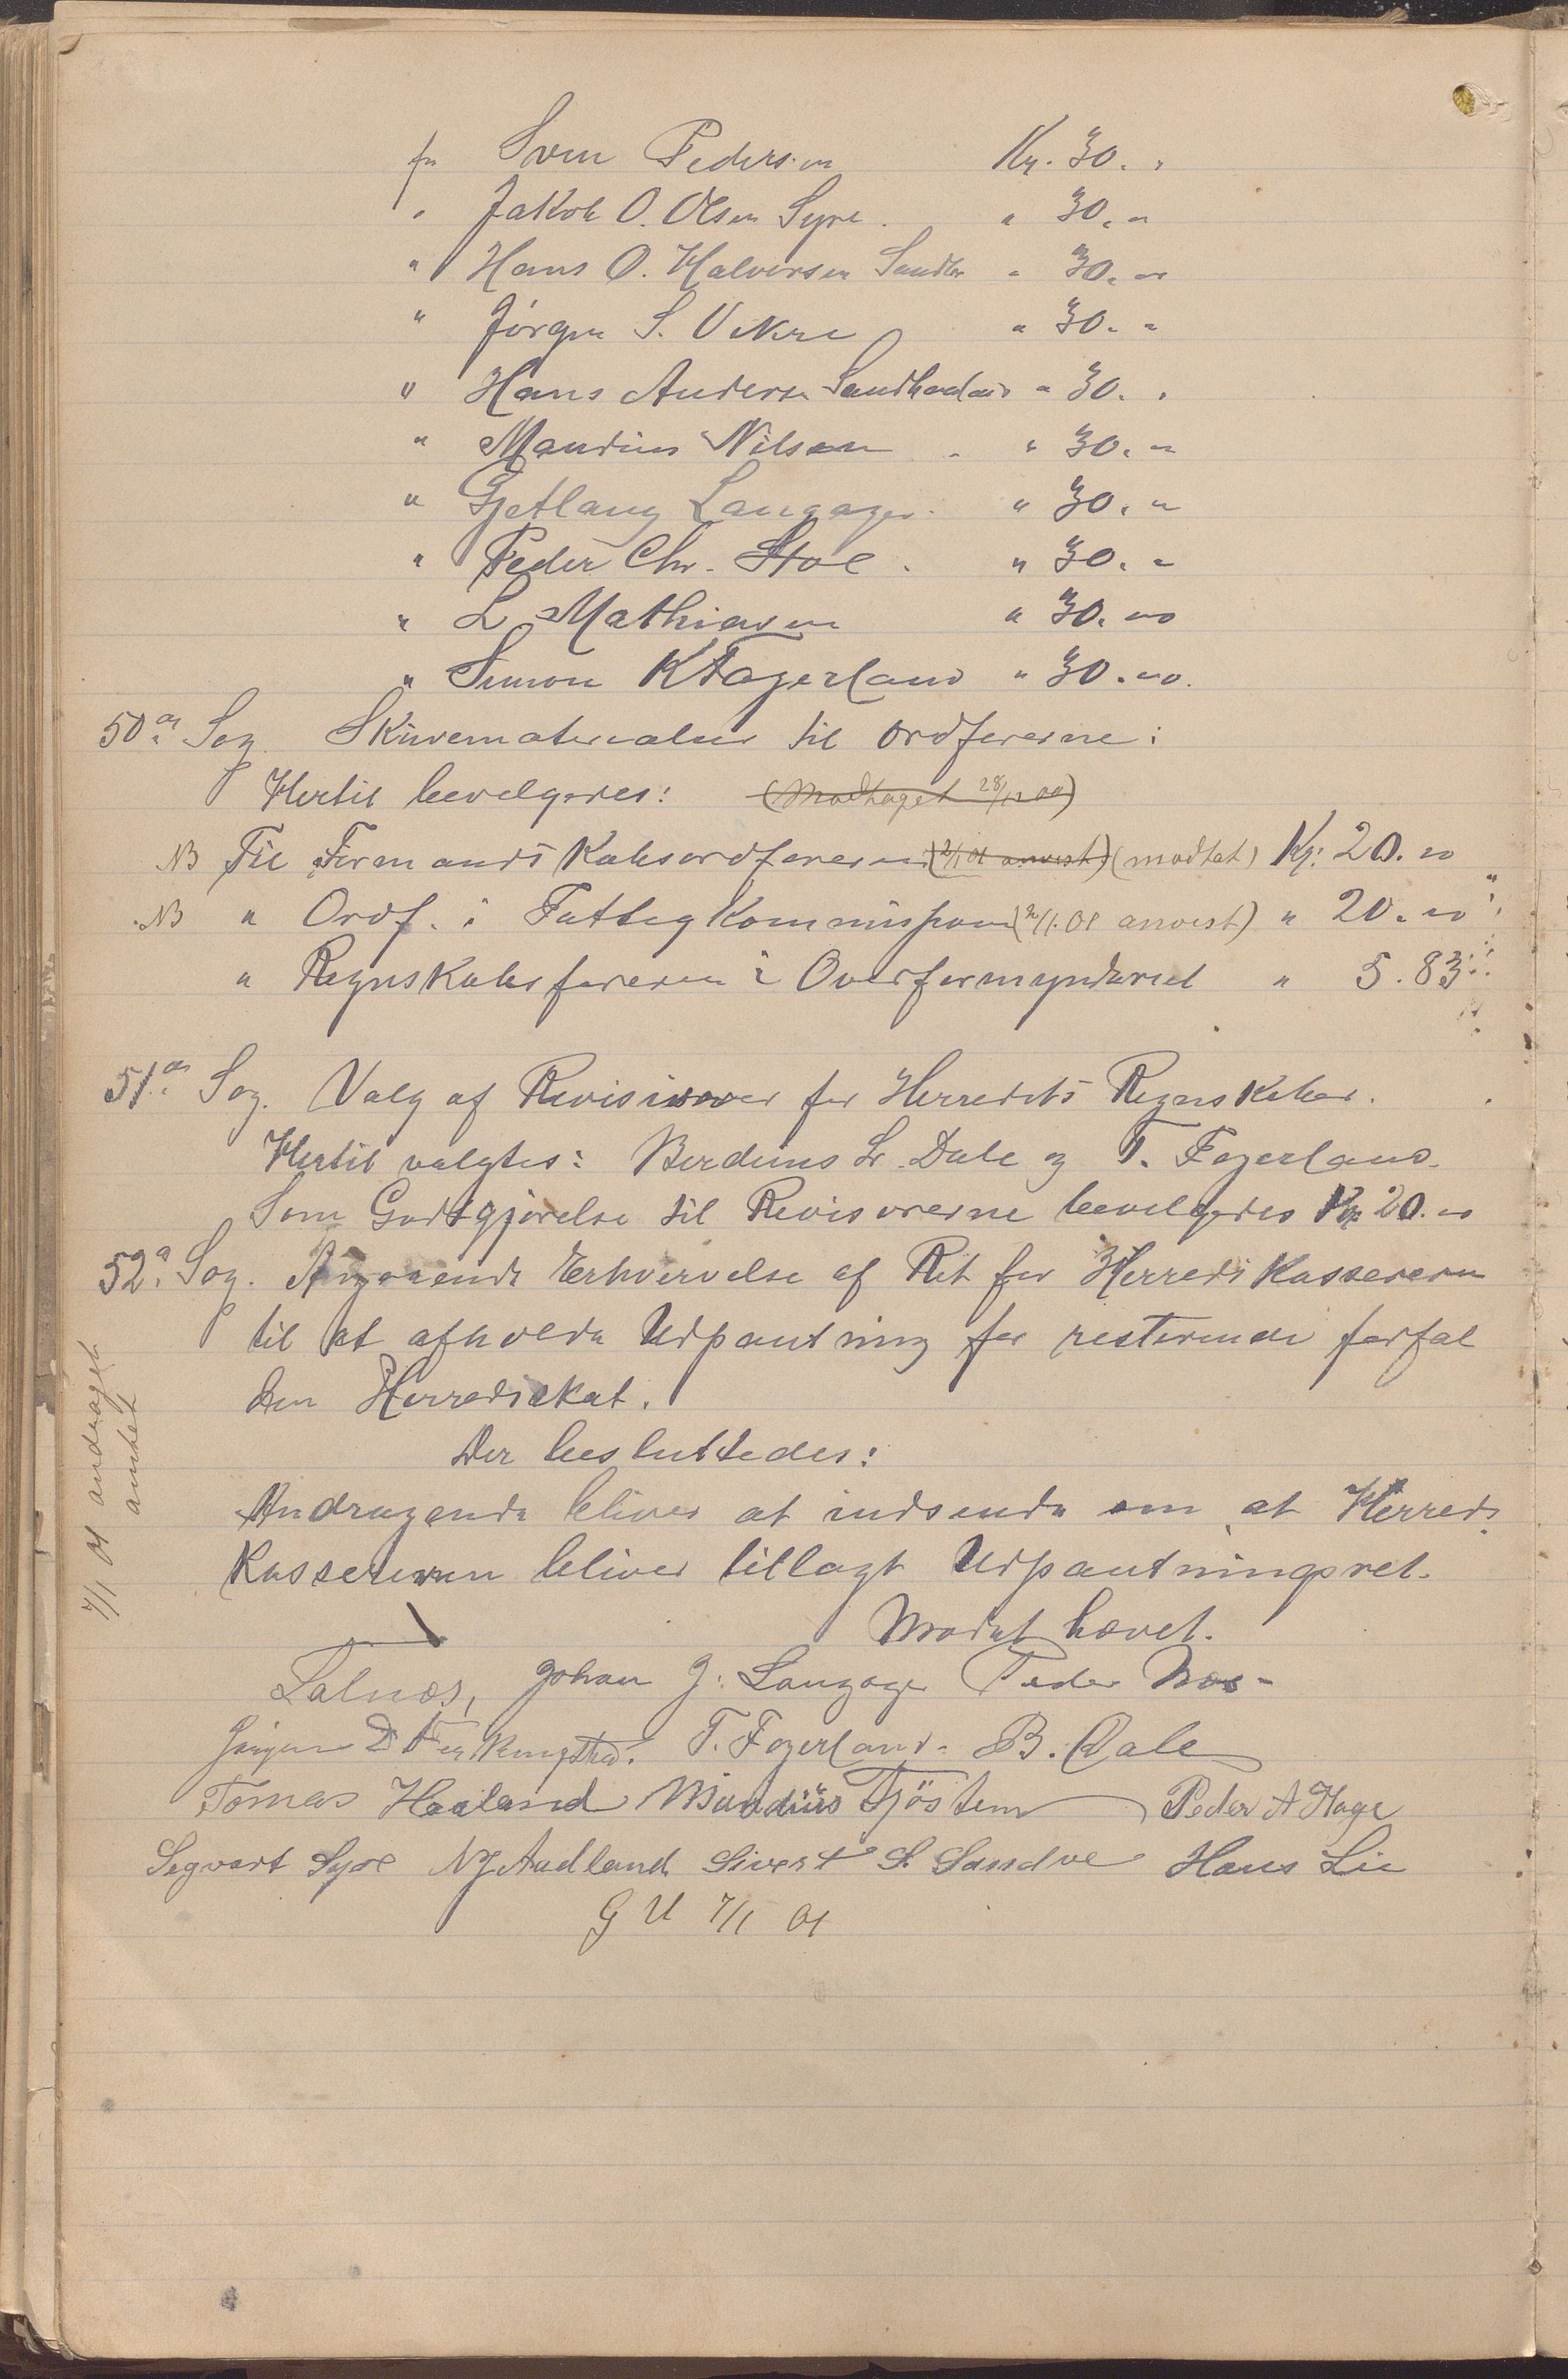 for Sven Pedersen Kr. 30. "
" Jakob O. Olsen Syre. " 30. "
" Hans O. Halvorsen Sandve " 30. "
" Jörgen S. Vikre " 30. "
" Hans Andersen Sandhadland " 30. "
" Maudius Nilsen " 30. "
" Gjetlaug Langager " 30. "
" Peder Chr. Stol. " 30. "
" L Mathiasen " 30. oo
" Simon K Fagerland " 30. oo.
50de Sag. Skrivematerialier til Ordførerne:
Hertil bevilgedes: (Modtaget 28/12 00)
NB Til Formandskabsordføreren (2/1 01 anvist) (modtat) Kr: 20. oo
NB " Ordf. i Fattigkommissionen (2/1. 01 anvist) " 20. oo
" Regnskabsføreren i Overformynderiet " 5.83
51de Sag. Valg af Revisorer for Herredets Regnskaber.
Hertil valgtes: Berdinus L. Dale og T. Fagerland.
Som Godtgjørelse til Revisorerne bevilgedes Kr 20. oo
52de Sag. Angaaende Erhvervelse af Ret for Herredskassereren
til at afholde Udpantning for resterende forfal
den Herredsskat.
Der besluttedes:
Andragende bliver at indsende om at Herreds
kassereren bliver tillagt Udpantningsret.
Mødet hævet.
7/1 01 andraget
amtet
Falnes, Johan J. Langager Peder Næs-
Jörgen D Ferkingstad. T. Fagerland. B. Dale
Tomas Haaland Maudius Tjöstem Peder A Hage
Segvart Syre N J Audland Sivert S. Sandve Hans Lie
G U 7/1 01